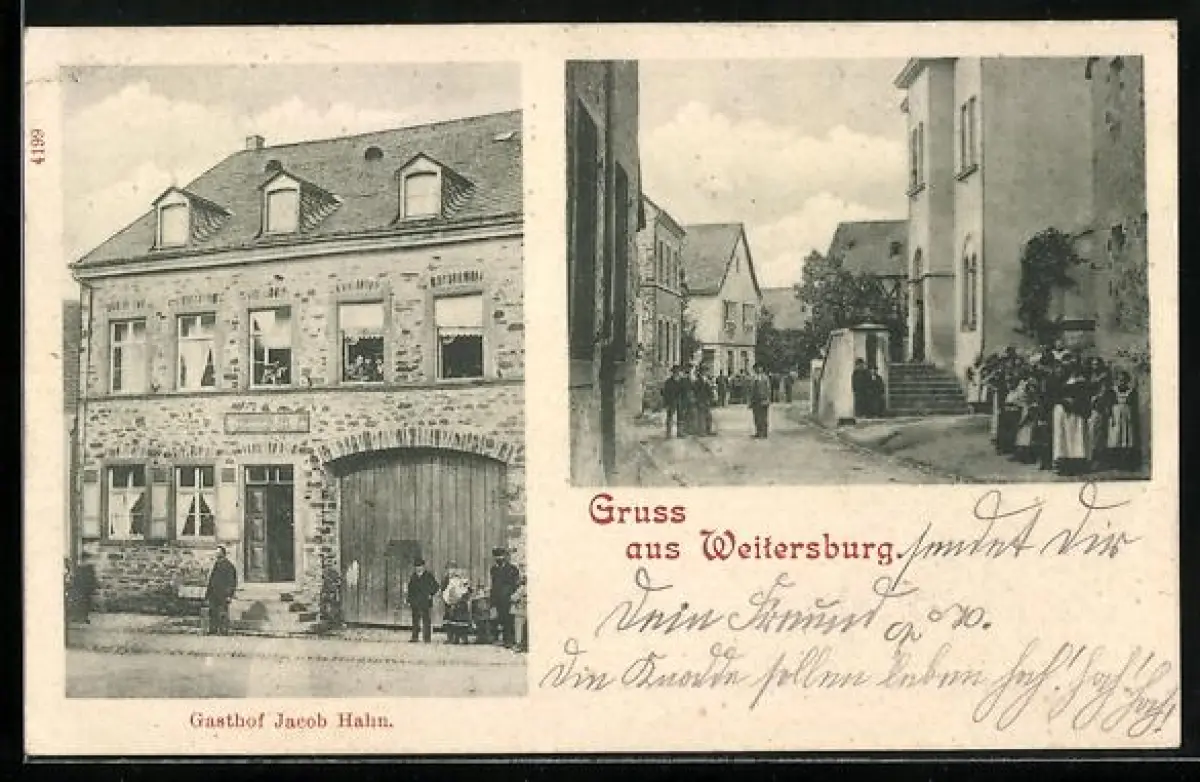 4199
Gasthof Jacob Hahn.
Gruss
aus Weitersburg.
sendet Dir
Dein Freund
Die sollen leben hoch! hoch! hoch!